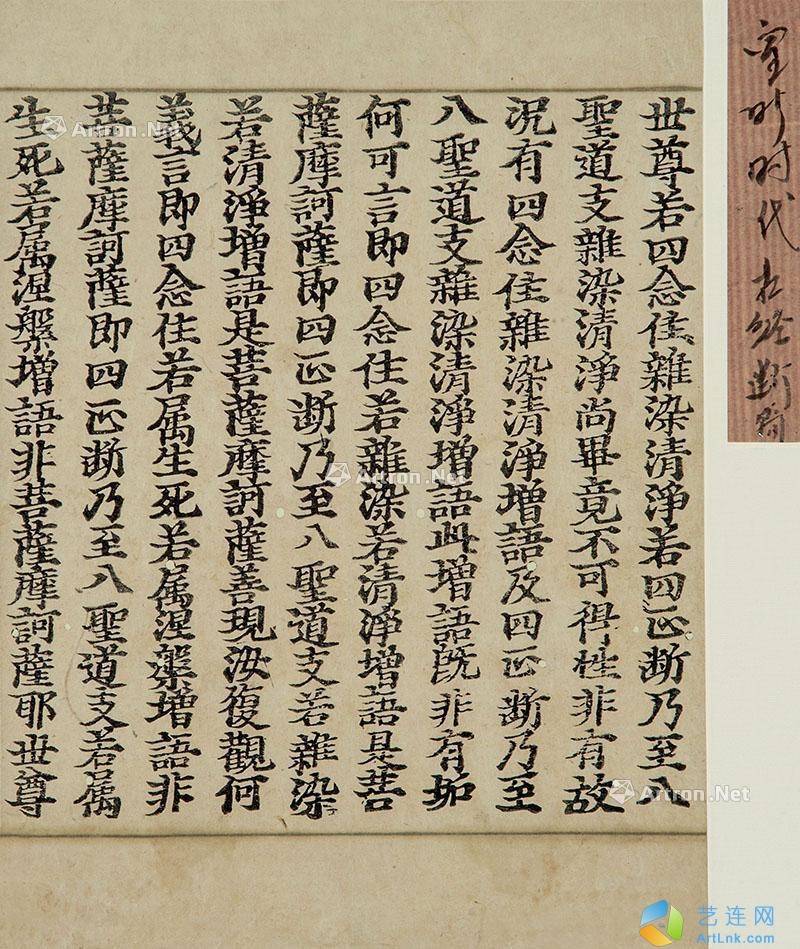 室町时代
世尊若四念住雜染清淨若四正断乃至八
聖道支雜染清淨尚畢竟不可得性非有故
況有四念住雜染清淨増語及四正断乃至
八聖道支雜染清淨増語此増語既非有如
何可言即四念住若雜染若清淨増語是菩
薩摩訶薩即四正断乃至八聖道支若雜染
若清淨増語是菩薩摩訶薩善現汝復觀何
義言即四念住若属生死若属涅槃増語非
菩薩摩訶薩即四正断乃至八聖道支若属
生死若属涅槃増語非菩薩摩訶薩耶世尊
Artron.Net
Artron.Net
Artron.Net
艺连网
ArtLnk.com